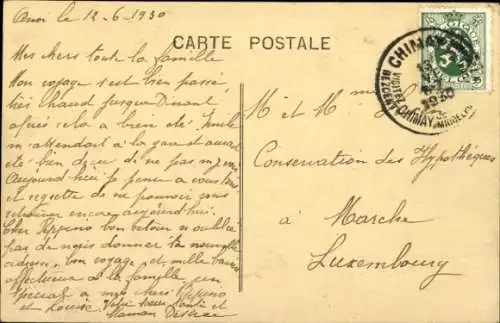 Anor le 12-6-1930
Mes chers toute la famille
Mon voyage s'est bien passé,
très chaud jusque Dinant
après cela a bien été. Emile
m'attendait à la gare et avait
été bien de ne pas m'
Aujourd'hui je pense à vous tous
et regrette de ne pouvoir vous
retrouver encore aujourd'hui.
Cher Peppino bon retour n'oubliez
pas de nous donner ta nouvelle
adresse. bon voyage et mille baisers
affectueux à la famille, un
spécial à mes chers Peppino
et Louise. Votre et
Maman
CARTE POSTALE
CHIMAY
1930
CHIMAY
VISITEZ
M et Mme
Conservation des Hypothèques
à Marche
Luxembourg